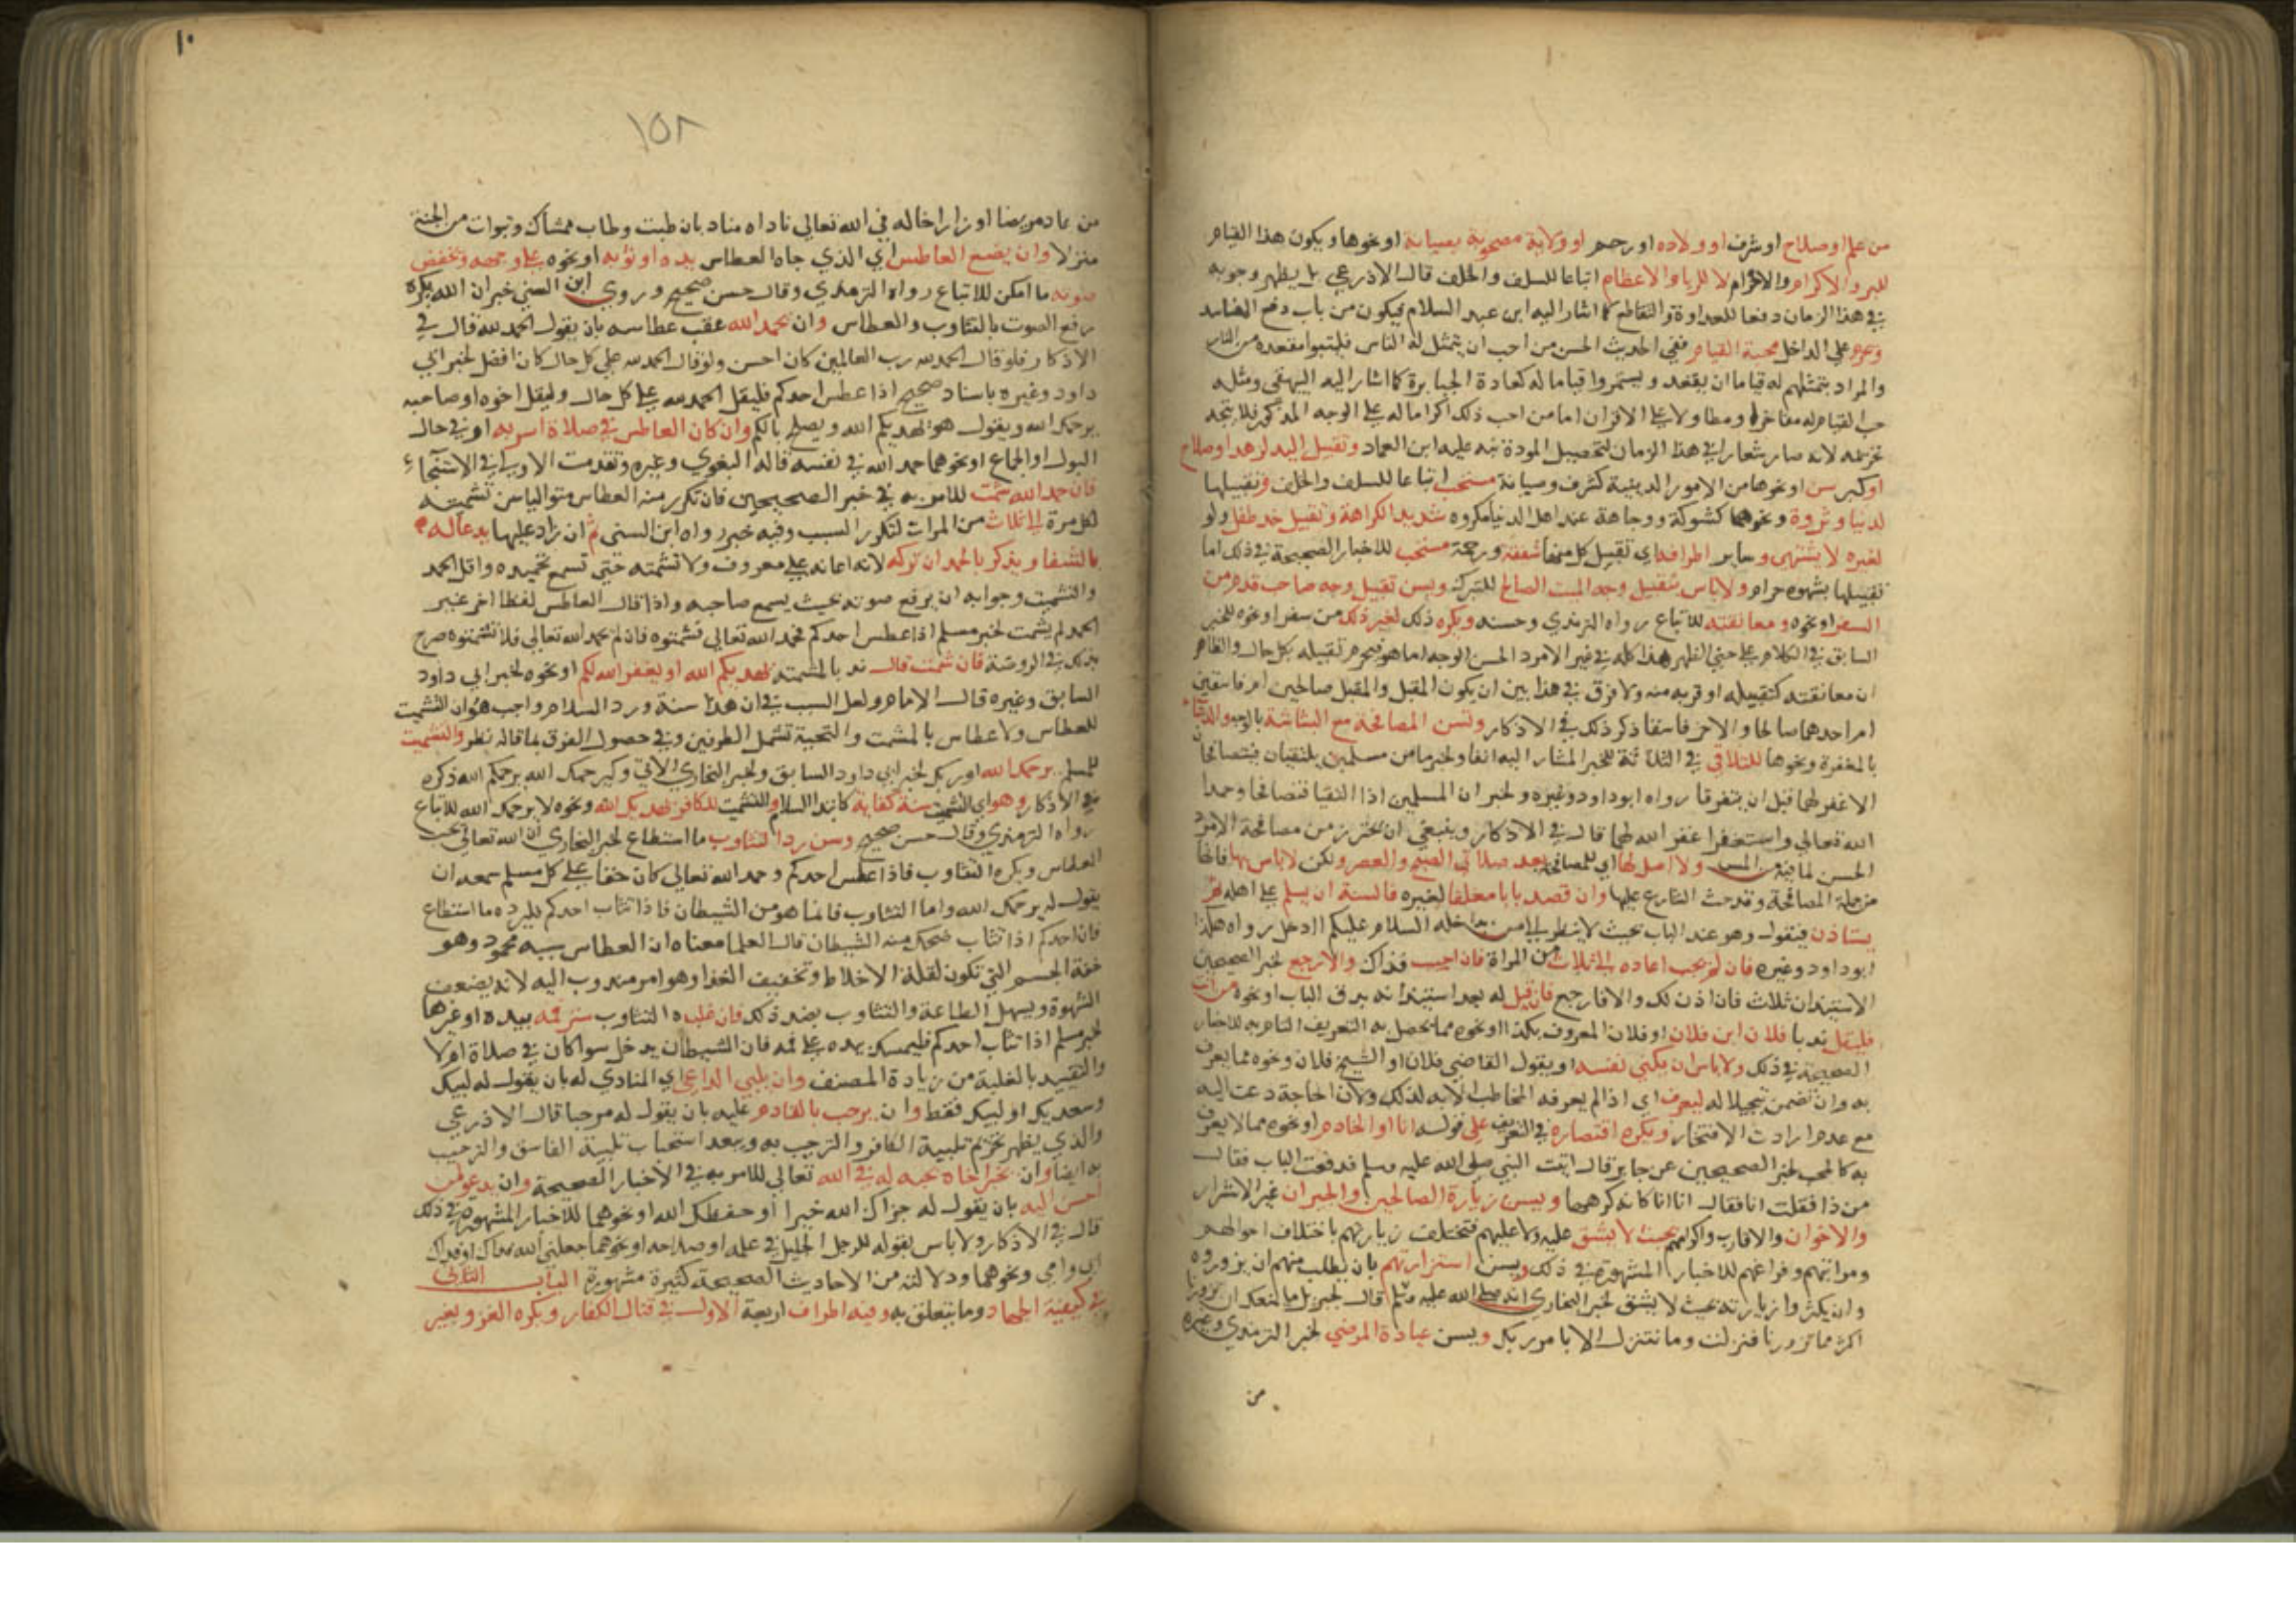 من علم او صلاح او شرف او ولاده او رحم او ولاية مصحوبة بصيانة او نحوها ويكون هذا القيام
للبر والاكرام والاحترام لا للريا والاعظام اتباعا للسلف والخلف قال الاذرعي بل يظهر وجوبه
في هذا الزمان دفعا للعداوة والتقاطع كما اشار اليه ابن عبد السلام فيكون من باب دفع المفاسد
وحرم على الداخل محبة القيام ففي الحديث الحسن من احب ان يتمثل له الناس فليتبوا مقعده من النار
والمراد بتمثلهم له قياما ان يقعد ويستمروا قياما له كعادة الجبابرة كما اشار اليه البيهقي ومثله
حب القيام له مفاخرة ومطاولا على الاقران اما من احب ذلك اكراما له على الوجه المذكور فلا يتجه
تحريمه لانه صار شعارا في هذا الزمان لتحصيل المودة نبه عليه ابن العماد وتقبيل اليد لزهد او صلاح
او كبر سن او نحوها من الامور الدينية كشرف وصيانة مستحب اتباعا للسلف والخلف وتقبيلها
لدنيا وثروة ونحوهما كشوكة ووجاهة عند اهل الدنيا مكروه شديد الكراهة وتقبيل خد طفل ولو
لغيره لا يشتهى وساير اطرافه اي تقبيل كل منها شفقة ورحمة مستحب للاخبار الصحيحة في ذلك اما
تقبيلها بشهوه حرام ولا باس بتقبيل وجه الميت الصالح للتبرك ويسن تقبيل وجه صاحب قدم من
السفر او نحوه ومعانقته للاتباع رواه الترمذي وحسنه ويكره ذلك لغير ذلك من سفر او نحوه للخبر
السابق في الكلام على حني الظهر هذا كله في غير الامرد الحسن الوجه اما هو فيحرم تقبيله بكل حال والظاهر
ان معانقته كتقبيله او قريبه منه ولا فرق في هذا بين ان يكون المقبل والمقبل صالحين ام فاسقين
ام احدهما صالحا والاخر فاسقا ذكر ذلك في الاذكار وتسن المصافحة مع البشاشة بالوجه والدعاء
بالمغفرة ونحوها للتلاقي في الثلاثة للخبر المشار اليه انفا ولخبر ما من مسلمين يلتقيان فيتصافحا
الا غفر لهما قبل ان يتفرقا رواه ابو داود وغيره ولخبر ان المسلمين اذا التقيا فتصافحا وحمدا
الله تعالى واستغفرا غفر الله لهما قال في الاذكار وينبغي ان يحترز من مصافحة الامرد
الحسن لما فيه من المس ولا اصل لها اي للمصافحة بعد صلاتي الصبح والعصر ولكن لا باس بها فانها
من جملة المصافحة وقد حث الشارع عليها وان قصد بابا مغلقا لغيره فالسنة ان يسلم على اهله ثم
يستاذن فيقول وهو عند الباب بحيث لا ينظر الى من بداخله السلام عليكم اادخل رواه هكذا
ابو داود وغيره فان لم يجب اعاده الى الثلاث من المراة فان اجيب فذاك والا رجع لخبر الصحيحين
الاستيذان ثلاث فان اذن لك والا فارجع فان قيل له بعد استيذانه بدق الباب او نحوه من انت
فليقل ندبا فلان ابن فلان او فلان المعروف بكذا او نحوه مما يحصل به التعريف التام به للاخبار
الصحيحة في ذلك ولا باس ان يكني نفسه او يقول القاضي فلان او الشيخ فلان ونحوه مما يعرف
به وان تضمن تبجيلا له ليعرف اي اذا لم يعرفه المخاطب الا به لذلك ولان الحاجة دعت اليه
مع عدم ارادت الافتخار ويكره اقتصاره في التعريف على قوله انا او الخادم او نحوه مما لا يعرف
به كالمحب لخبر الصحيحين عن جابر قال اتيت النبي صلى الله عليه وسلم فدققت الباب فقال
من ذا فقلت انا فقال انا انا كانه كرهها ويسن زيارة الصالحين والجيران غير الاشرار
والاخوان والاقارب واكرامهم بحيث لا يشق عليه ولا عليهم فتختلف زيارتهم باختلاف احوالهم
ومراتبهم وفراغهم للاخبار المشهورة في ذلك ويسن استزارتهم بان يطلب منهم ان يزوروه
وان يكثروا زيارته بحيث لا يشق لخبر البخاري انه صلى الله عليه وسلم قال لجبريل ما يمنعك ان تزورنا
اكثر مما تزورنا فنزلت وما نتنزل الا بامر ربك ويسن عيادة المرضى لخبر الترمذي وغيره
من
١٠
١٥٨
من عاد مريضا او زار اخا له في الله تعالى ناداه مناد بان طبت وطاب ممشاك وتبوات من الجنة
منزلا وان يضع العاطس اي الذي جاه العطاس يده او ثوبه او نحوه على وجهه ويخفض
صوته ما امكن للاتباع رواه الترمذي وقال حسن صحيح وروى ابن السني خبر ان الله يكره
رفع الصوت بالتثاوب والعطاس وان يحمد الله عقب عطاسه بان يقول الحمد لله قال في
الاذكار فلو قال الحمد لله رب العالمين كان احسن ولو قال الحمد لله على كل حال كان افضل لخبر ابي
داود وغيره باسناد صحيح اذا عطس احدكم فليقل الحمد لله على كل حال وليقل اخوه او صاحبه
يرحمك الله ويقول هو يهديكم الله ويصلح بالكم وان كان العاطس في صلاة اسر به او في حال
البول او الجماع او نحوهما حمد الله في نفسه قاله البغوي وغيره وتقدمت الاولى في الاستنجاء
فان حمد الله شمت للامر به في خبر الصحيحين فان تكرر منه العطاس متواليا سن تشميته
لكل مرة الى ثلاث من المرات لتكرر السبب وفيه خبر رواه ابن السني ثم ان زاد عليها يدعا له
بالشفا ويذكر بالحمد ان تركه لانه اعانه على معروف ولا تشمته حتى تسمع تحميده واقل الحمد
والتشميت وجوابه ان يرفع صوته بحيث يسمع صاحبه واذا قال العاطس لفظا اخر غير
الحمد لم يشمت لخبر مسلم اذا عطس احدكم فحمد الله تعالى فشمتوه فان لم يحمد الله تعالى فلا تشمتوه صرح
بذلك في الروضة فان شمت قال ندبا لمشمته يهديكم الله او يغفر الله لكم او نحوه لخبر ابي داود
السابق وغيره قال الامام ولعل السبب في ان هذا سنة ورد السلام واجب هو ان التشميت
للعطاس ولا عطاس بالمشمت والتحية تشمل الطرفين وفي حصول الفرق بما قاله نظر والتشميت
للمسلم يرحمك الله او ربك لخبر ابي داود السابق ولخبر البخاري الاتي وكيرحمك الله يرحمكم الله ذكره
في الاذكار وهو اي التشميت سنة كفاية كابتدا السلام والتشميت للكافر يهديك الله ونحوه لا يرحمك الله للاتباع
رواه الترمذي وقال حسن صحيح وسن رد التثاوب ما استطاع لخبر البخاري ان الله تعالى يحب
العطاس ويكره التثاوب فاذا عطس احدكم وحمد الله تعالى كان حقا على كل مسلم سمعه ان
يقول له يرحمك الله واما التثاوب فانما هو من الشيطان فاذا تثاب احدكم فليرده ما استطاع
فان احدكم اذا تثاب ضحك منه الشيطان قال العلما معناه ان العطاس سببه محمود وهو
خفة الجسم التي تكون لقلة الاخلاط وتخفيف الغذا وهو امر مندوب اليه لانه يضعف
الشهوة ويسهل الطاعة والتثاوب بضد ذلك فان غلبه التثاوب ستر فمه بيده او غيرها
لخبر مسلم اذا تثاب احدكم فليمسك بيده على فمه فان الشيطان يدخل سوا كان في صلاة ام لا
والتقييد بالغلبة من زيادة المصنف وان يلبي الداعي اي المنادي له بان يقول له لبيك
وسعديك او لبيك فقط وان يرحب بالقادم عليه بان يقول له مرحبا قال الاذرعي
والذي يظهر تحريم تلبية الكافر والترحيب به ويبعد استحباب تلبية الفاسق والترحيب
به ايضا وان يخبر اخاه بحبه له في الله تعالى للامر به في الاخبار الصحيحة وان يدعو لمن
احسن اليه بان يقول له جزاك الله خيرا او حفظك الله او نحوهما للاخبار المشهورة في ذلك
قال في الاذكار ولا باس بقوله للرجل الجليل في علمه او صلاحه او نحوهما جعلني الله فداك او فداك
ابي وامي ونحوهما ودلالته من الاحاديث الصحيحة كثيرة مشهورة الباب الثاني
في كيفية الجهاد وما يتعلق به وفيه اطراف اربعة الاول في قتال الكفار ويكره الغزو بغير